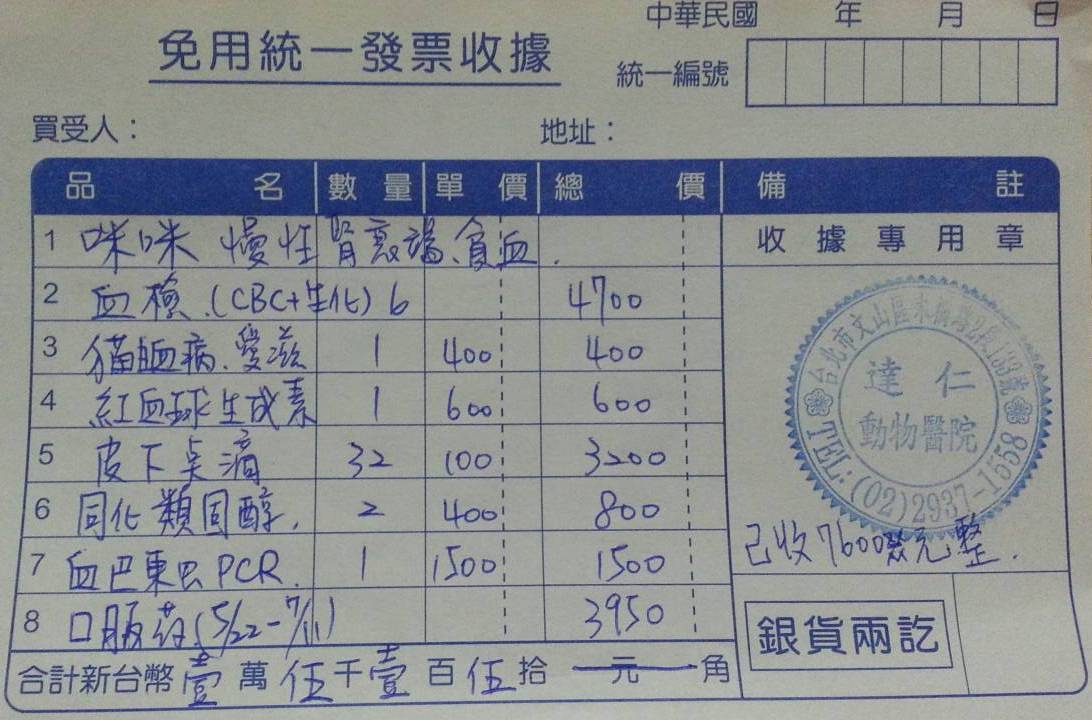 中華民國 年 月 日
免用統一發票收據
統一編號
買受人：
地址：
品名 數量 單價 總價 備註
1 咪咪 慢性腎衰竭、貧血.
收據專用章
2 血檢.(CBC+生化) 6 4700
3 貓血病.愛滋 1 400 400
4 紅血球生成素 1 600 600
5 皮下点滴 32 100 3200
6 同化類固醇. 2 400 800
7 血巴東虫 PCR. 1 1500 1500
8 口服药(5/22-7/11) 3950
台北市文山區木新路2段133號
達仁
動物醫院
TEL:(02)2937-1558
已收7600元整.
銀貨兩訖
合計新台幣壹萬伍千壹百伍拾元角